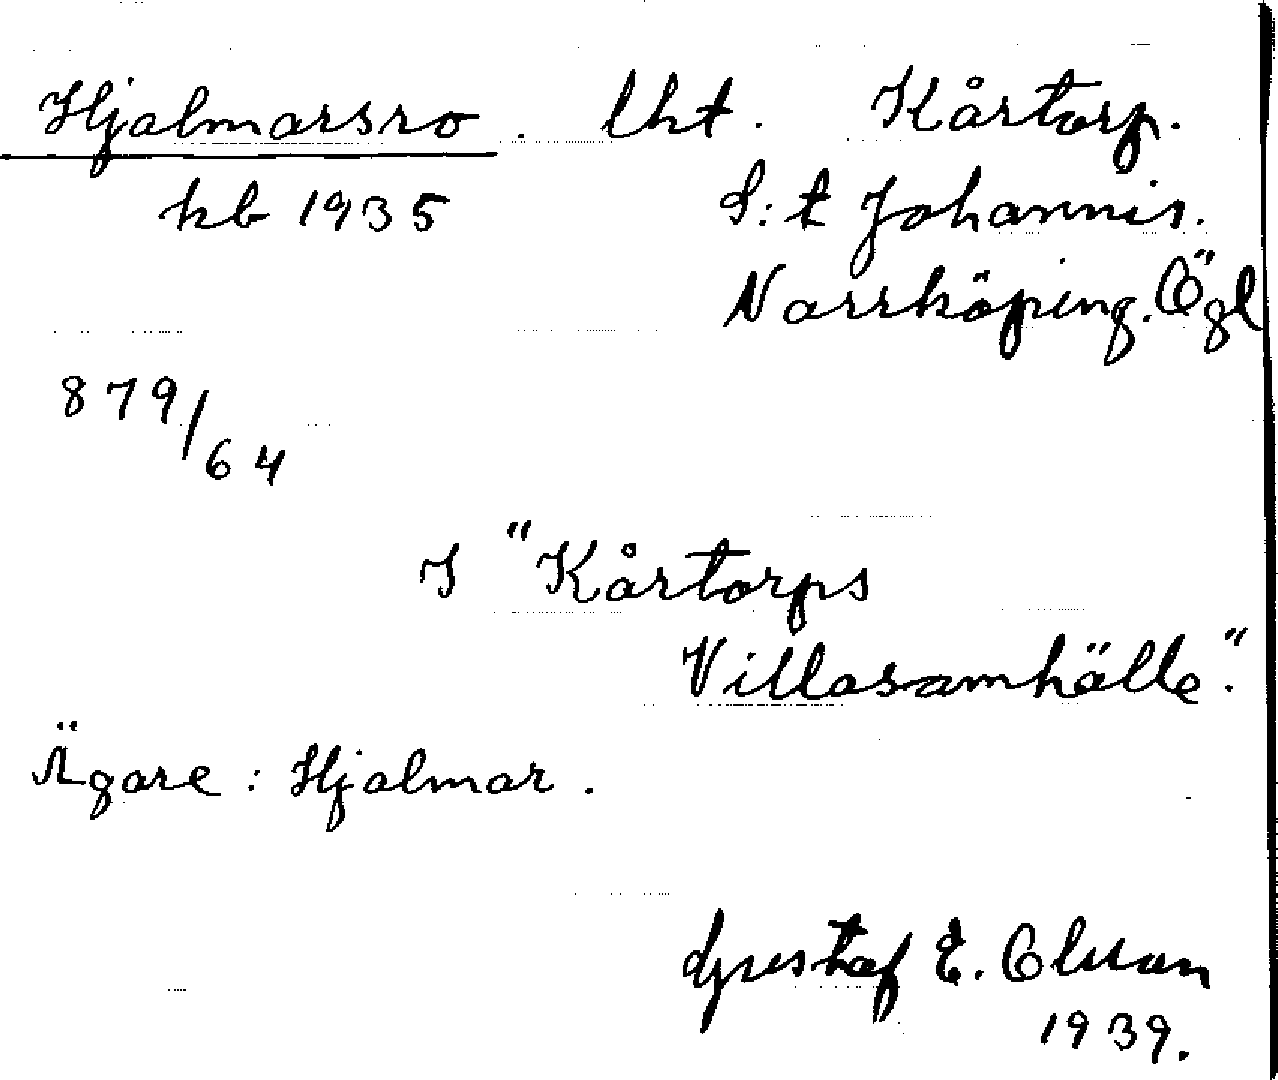 Hjalmarsro. lht. Kårtorp.
kb 1935 S:t Johannis.
Norrköping. Ögl
879/64
I "Kårtorps
Villasamhälle".
Ägare: Hjalmar.
Gustaf E. Olsson
1939.